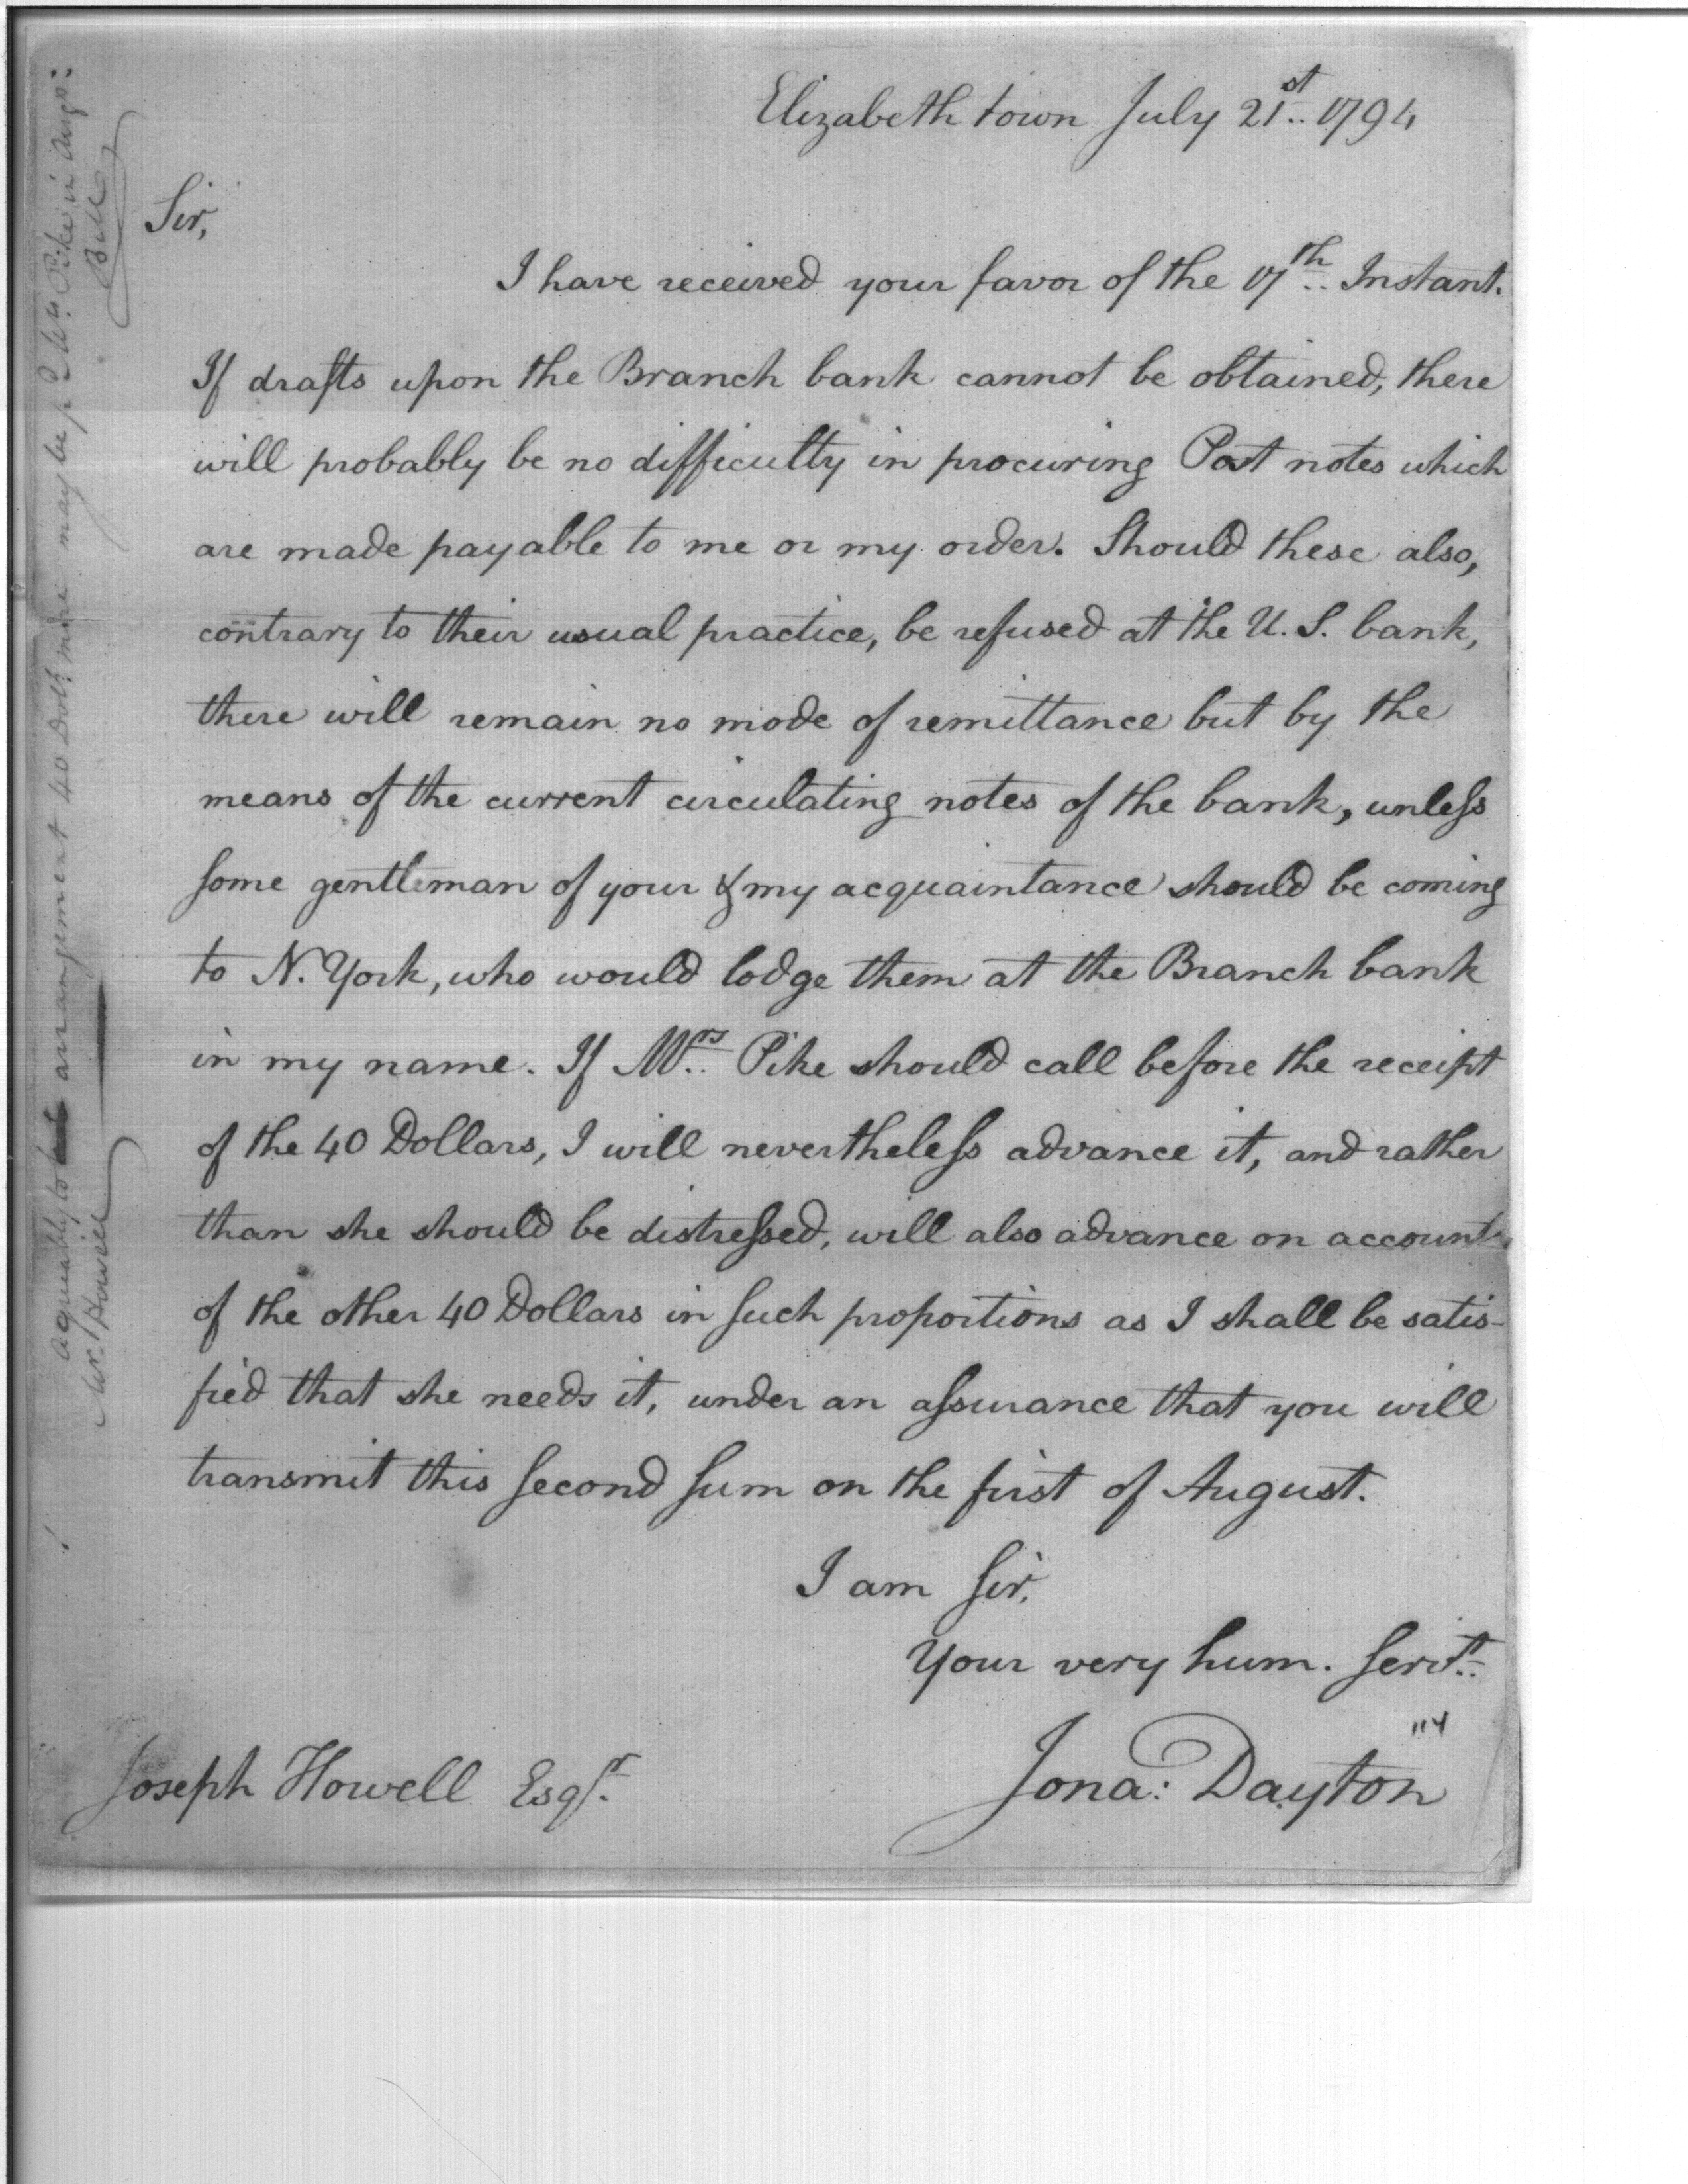 Elizabeth town July 21st.. 1794
Sir,
I have received your favor of the 17th.. Instant.
If drafts upon the Branch bank cannot be obtained, there
will probably be no difficulty in procuring Post notes which
are made payable to me or my order. Should these also,
contrary to their usual practice, be refused at the U. S. bank,
there will remain no mode of remittance but by the
means of the current circulating notes of the bank, unless
some gentleman of your & my acquaintance should be coming
to N. York, who would lodge them at the Branch bank
in my name. If Mrs.. Pike should call before the receipt
of the 40 Dollars, I will nevertheless advance it, and rather
than she should be distressed, will also advance on account
of the other 40 Dollars in such proportions as I shall be satis-
fied that she needs it, under an assurance that you will
transmit this second sum on the first of August.
I am Sir,
Your very hum. Servt..
Jona: Dayton
114
Joseph Howell Esqr.
agreeably to arrangement 40 Dolls more may be pd Mrs. Pike in Augt:
Mr. Howell